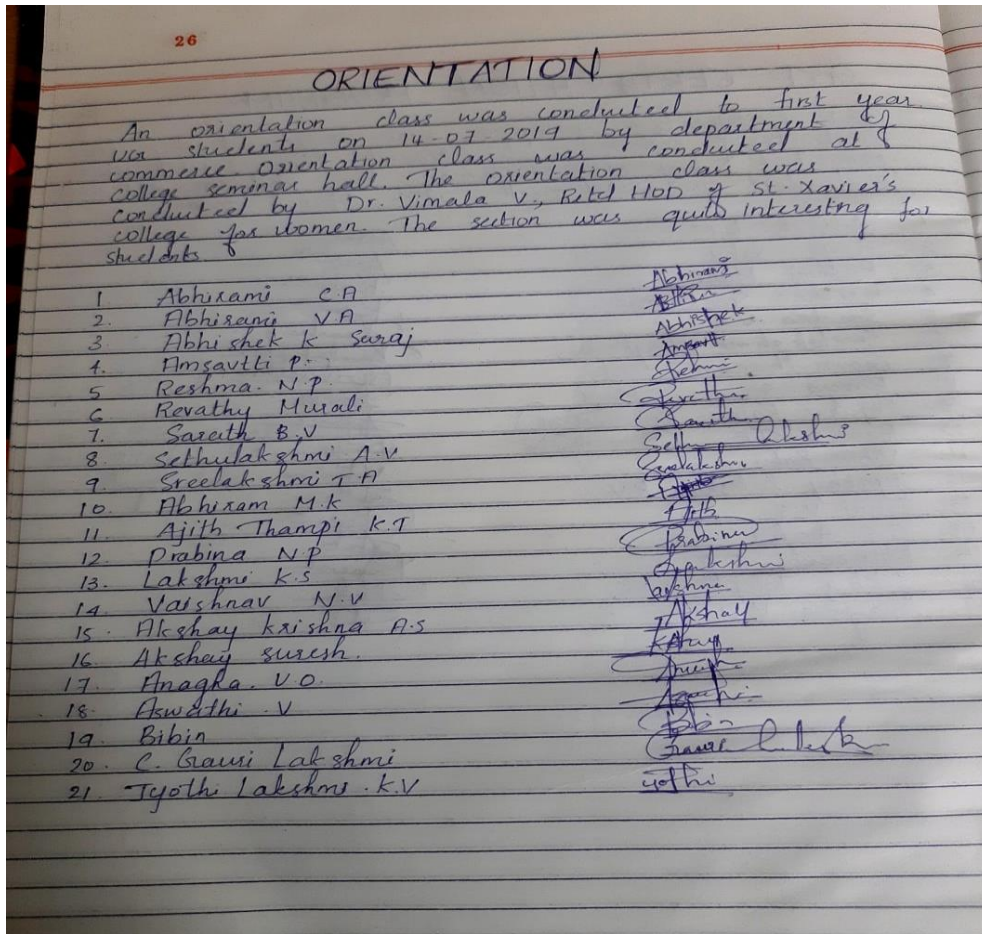 26
ORIENTATION
An orientation class was conducted to first year
UG students on 14-07-2019 by department of
commerce. Orientation class was conducted at
college seminar hall. The orientation class was
conducted by Dr. Vimala V, Retd HOD of St. Xavier's
college for women. The section was quite interesting for
students
1 Abhirami C.A Abhirami
2. Abhirami V.A
3 Abhishek K Suraj Abhishek
4. Amsavtti P.
5 Reshma. N.P.
6 Revathy Murali
7. Sarath B.V Sarath
8 Sethulakshmi A.V Sethu Lakshmi
9. Sreelakshmi T.A Sreelakshmi
10 Abhiram M.K
11. Ajith Thampi K.T Ajith
12. Prabina N.P Prabina
13. Lakshmi K.S Lakshmi
14 Vaishnav N.V
15. Akshay Krishna A.S Akshay
16. Akshay Suresh.
17. Anagha. V.O.
18. Aswathi. V
19. Bibin Bibin
20. C. Gauri Lakshmi
21. Jyothi Lakshmi. K.V yothi